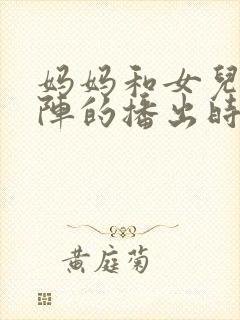 妈妈和女兒
陣的播出時
黄庭菊